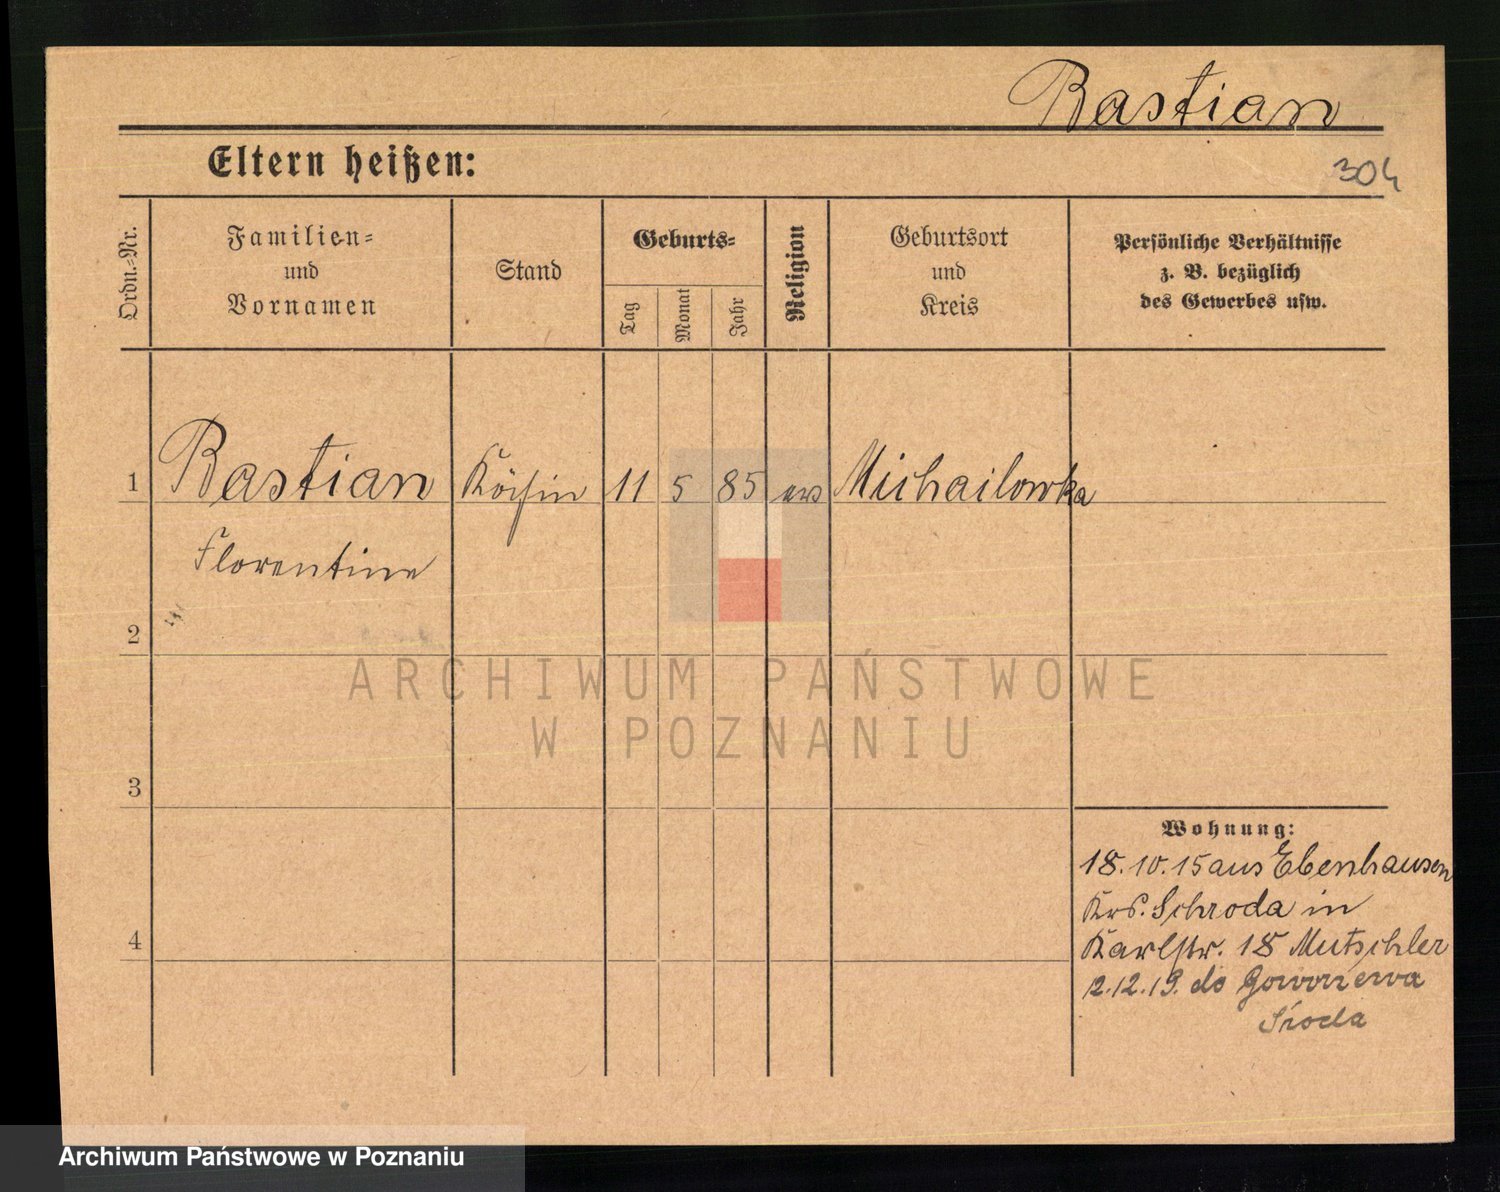 Bastian
Eltern heißen:
304
Ordn.-Nr.
Familien-
und
Vornamen
Stand
Geburts-
Tag
Monat
Jahr
Religion
Geburtsort
und
Kreis
Persönliche Verhältnisse
z. B. bezüglich
des Gewerbes usw.
1 Bastian Köchin 11 5 85 Michailowka
Florentine
2
3
4
Wohnung:
18.10.15 aus Ebenhausen
Krs. Schroda in
Karlstr. 18 Mutschler
2.12.19. do
Środa
ARCHIWUM PAŃSTWOWE
W POZNANIU
Archiwum Państwowe w Poznaniu